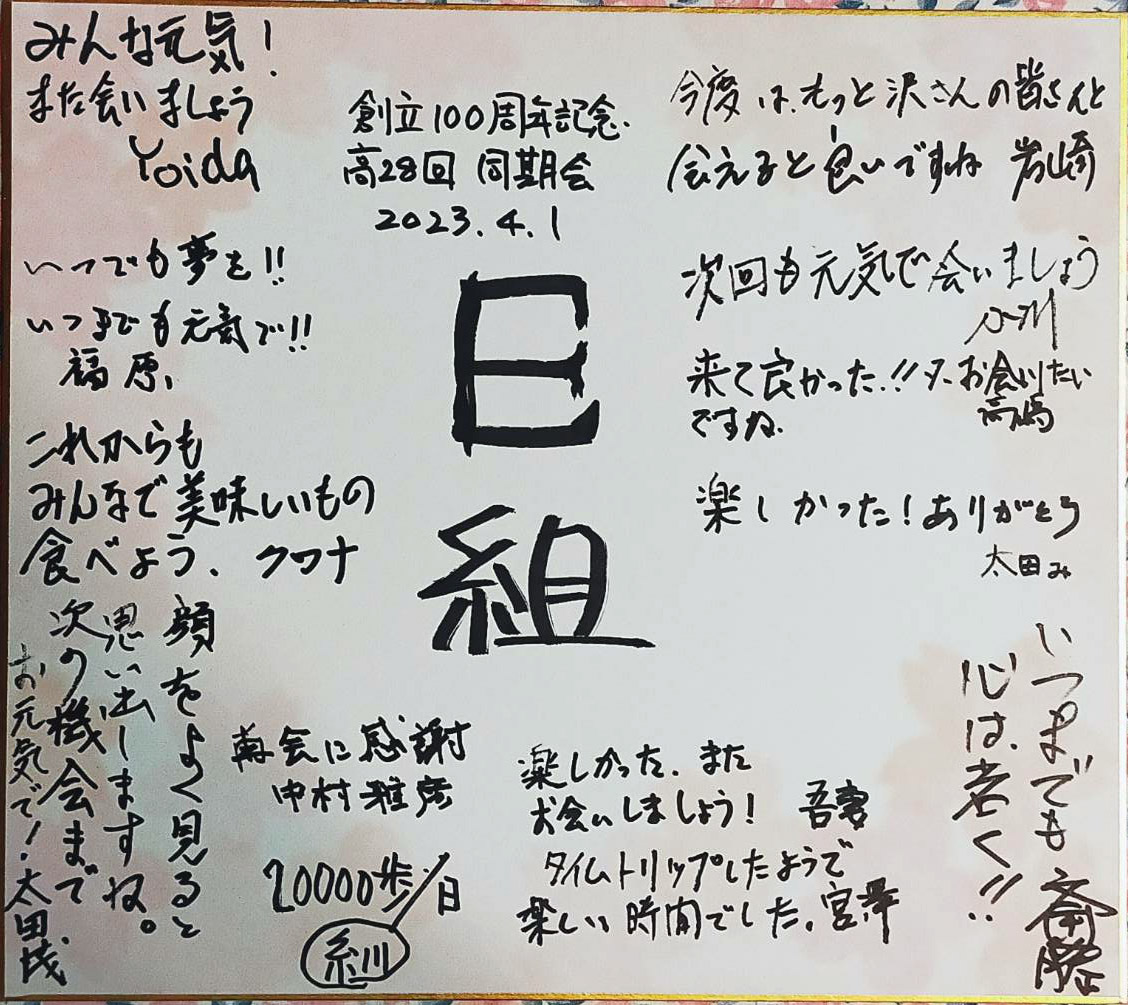 創立100周年記念
高28回 同期会
2023.4.1
E
組
みんな元気!
また会いましょう
Yoida
いつでも夢を!!
いつまでも元気で!!
福原、
これからも
みんなで美味しいもの
食べよう、クワナ
顔をよく見ると
思い出しますね。
次の機会まで
お元気で!太田茂
今度は、もっと沢さんの皆さんと
会えると良いですね 岩崎
次回も元気で会いましょう
来て良かった!!又、お会いしたい
ですね。 高嶋
楽しかった!ありがとう
太田み
いつまでも
心は、若く!!
斎藤
再会に感謝
中村雅彦
20000歩/日
糸川
楽しかった、また
お会いしましょう! 吾妻
タイムトリップしたようで
楽しい時間でした。宮澤